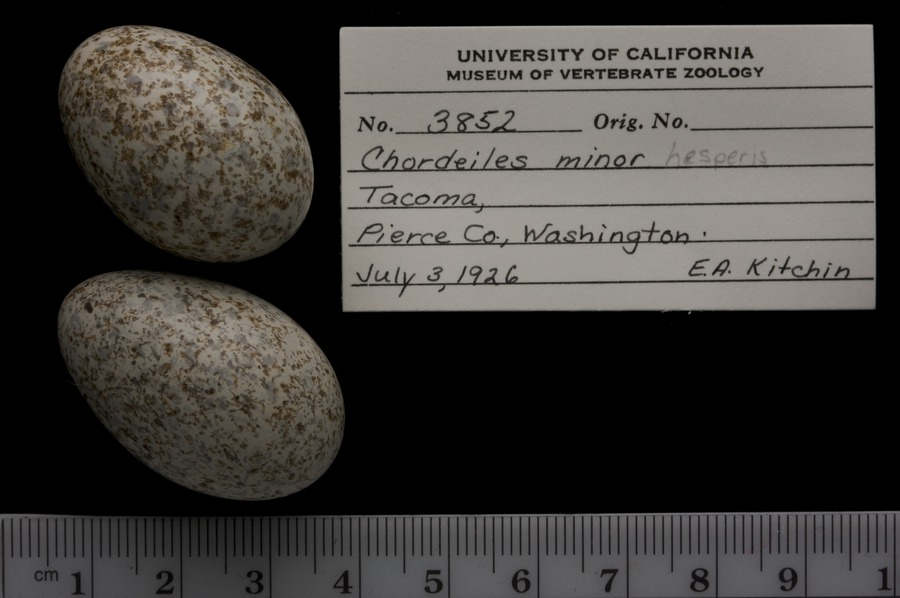 UNIVERSITY OF CALIFORNIA
MUSEUM OF VERTEBRATE ZOOLOGY
No. 3852 Orig. No.
Chordeiles minor hesperis
Tacoma,
Pierce Co., Washington.
July 3, 1926 E.A. Kitchin
cm 1 2 3 4 5 6 7 8 9 1